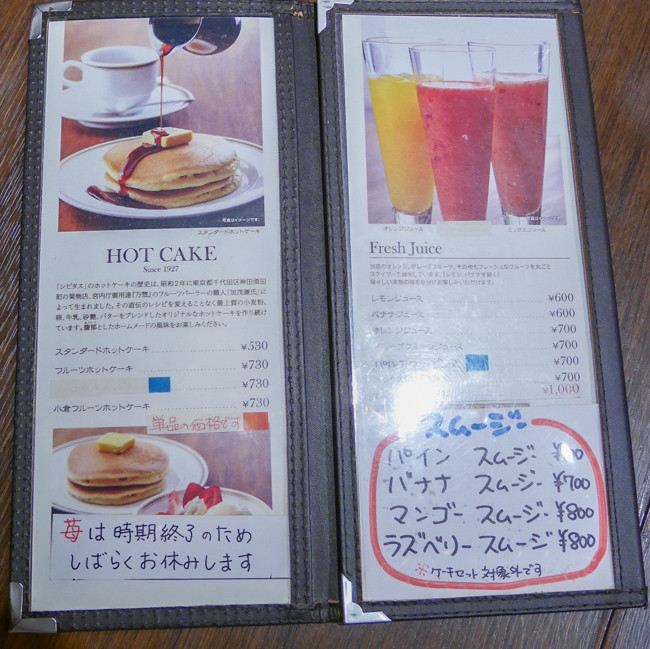 ※写真はイメージです。
スタンダードホットケーキ
HOT CAKE
Since 1927
「シビタス」のホットケーキの歴史は、昭和2年に東京都千代田区神田須田
町の果物店、宮内庁御用達『万惣』のフルーツパーラーの職人「加茂謙氏」に
よって生まれました。その直伝のレシピを変えることなく最上質の小麦粉、
卵、牛乳、砂糖、バターをブレンドしたオリジナルなホットケーキを作り続け
ています。馥郁としたホームメードの風味をお楽しみください。
スタンダードホットケーキ ¥530
フルーツホットケーキ ¥730
¥730
小倉フルーツホットケーキ ¥730
単品の価格です
苺は時期終了のため
しばらくお休みします
写真はイメージです。
オレンジジュース ミックスジュース
Fresh Juice
当店のオレンジ、グレープフルーツ、その他もフレッシュなフルーツを丸ごと
レモンジュース ¥600
バナナジュース ¥600
オレンジジュース ¥700
グレープフルーツジュース ¥700
¥700
¥700
¥1,000
スムージー
パイン スムージー
バナナ スムージー ¥700
マンゴー スムージー ¥800
ラズベリー スムージー ¥800
※ケーキセット対象外です